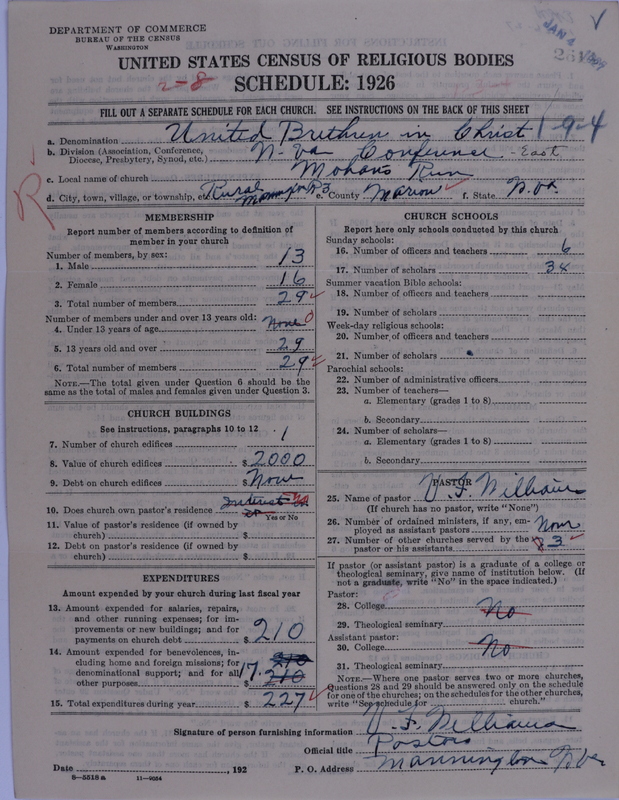 DEPARTMENT OF COMMERCE
BUREAU OF THE CENSUS
WASHINGTON
JAN 4
UNITED STATES CENSUS OF RELIGIOUS BODIES
2-8
SCHEDULE: 1926
FILL OUT A SEPARATE SCHEDULE FOR EACH CHURCH. SEE INSTRUCTIONS ON THE BACK OF THIS SHEET
a. Denomination United Brethren in Christ 1-9-4
b. Division (Association, Conference, Diocese, Presbytery, Synod, etc.) W. Va Conference - East
c. Local name of church Mohans Run
d. City, town, village, or township, etc. Rural R3 e. County Marion f. State W. Va.
R
MEMBERSHIP
Report number of members according to definition of
member in your church
Number of members, by sex:
1. Male 13
2. Female 16
3. Total number of members 29
Number of members under and over 13 years old:
4. Under 13 years of age None 0
5. 13 years old and over 29
6. Total number of members 29
NOTE.—The total given under Question 6 should be
same as the total of males and females given under Question 3.
CHURCH BUILDINGS
See instructions, paragraphs 10 to 12
7. Number of church edifices 1
8. Value of church edifices $ 2000
9. Debt on church edifices $ None
10. Does church own pastor's residence Interest in
Yes or No
11. Value of pastor's residence (if owned by
church) $
12. Debt on pastor's residence (if owned by
church) $
EXPENDITURES
Amount expended by your church during last fiscal year
13. Amount expended for salaries, repairs,
and other running expenses; for im-
provements or new buildings; and for
payments on church debt $ 210
14. Amount expended for benevolences, in-
cluding home and foreign missions; for
denominational support; and for all
other purposes $ 17. 210
15. Total expenditures during year $ 227
CHURCH SCHOOLS
Report here only schools conducted by this church
Sunday schools:
16. Number of officers and teachers 6
17. Number of scholars 34
Summer vacation Bible schools:
18. Number of officers and teachers
19. Number of scholars
Week-day religious schools:
20. Number of officers and teachers
21. Number of scholars
Parochial schools:
22. Number of administrative officers
23. Number of teachers—
a. Elementary (grades 1 to 8)
b. Secondary
24. Number of scholars—
a. Elementary (grades 1 to 8)
b. Secondary
PASTOR
25. Name of pastor V. F. Williams
(If church has no pastor, write "None")
26. Number of ordained ministers, if any, em-
ployed as assistant pastors None
27. Number of other churches served by the
pastor or his assistants 3
If pastor (or assistant pastor) is a graduate of a college or
theological seminary, give name of institution below. (If
not a graduate, write "No" in the space indicated.)
Pastor:
28. College No
29. Theological seminary
Assistant pastor:
30. College No
31. Theological seminary
NOTE.—Where one pastor serves two or more churches,
Questions 28 and 29 should be answered only on the schedule
for one of the churches; on the schedules for the other churches,
write "See schedule for church."
Signature of person furnishing information V. F. Williams
Official title Pastor
Date , 192 P. O. Address Mannington W. Va
8—5518 a 11—9054